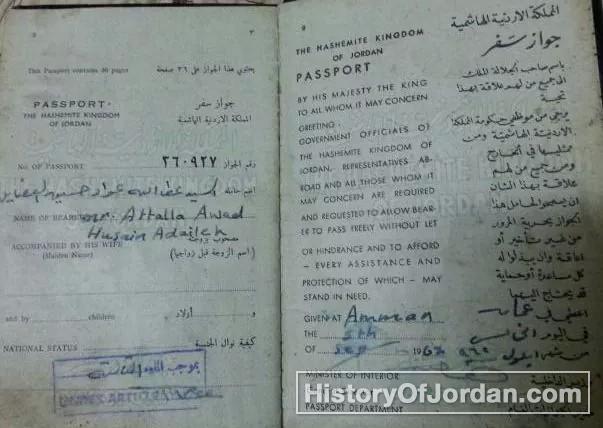 ٣
This Passport contains 36 pages
يحتوي هذا الجواز على ٣٦ صفحة
PASSPORT
THE HASHEMITE KINGDOM
OF JORDAN
جواز سفر
المملكة الاردنية الهاشمية
No. OF PASSPORT ٢٦٠٩٢٧ رقم الجواز
السيد عطاالله عواد حسين
اسم حامله
NAME OF BEARER Mr. Attalla Awad
Husain Adaileh
ACCOMPANIED BY HIS WIFE
(Maiden Name)
مصحوب بزوجته
(اسم الزوجة قبل زواجها)
and by children و أولاد
NATIONAL STATUS كيفية نوال الجنسية
بموجب المادة
UNDER ARTICLE
THE HASHEMITE KINGDOM
OF JORDAN
PASSPORT
BY HIS MAJESTY THE KING
TO ALL WHOM IT MAY CONCERN
GREETING.
GOVERNMENT OFFICIALS OF
THE HASHEMITE KINGDOM OF
JORDAN, REPRESENTATIVES AB-
ROAD AND ALL THOSE WHOM IT
MAY CONCERN ARE REQUIRED
AND REQUESTED TO ALLOW BEAR-
ER TO PASS FREELY WITHOUT LET
OR HINDRANCE AND TO AFFORD
— EVERY ASSISTANCE AND
PROTECTION OF WHICH — MAY
STAND IN NEED.
GIVEN AT Amman
THE 5th
OF Sep 196
MINISTER OF INTERIOR
PASSPORT DEPARTMENT
المملكة الاردنية الهاشمية
جواز سفر
باسم صاحب الجلالة الملك
الى جميع من لهم علاقة بهذا
تحية
يرجى من موظفي حكومة المملكة
الاردنية الهاشمية ومن
ممثليها في الخارج
ومن جميع من لهم
علاقة بهذا الشأن
ان يسمحوا لحامل هذا
الجواز بحرية المرور
من غير تأخير أو
اعاقة وان يبذلوا له
كل مساعدة أو حماية
قد يحتاج اليها
اعطي في عمان
في اليوم الخامس
من شهر ايلول
HistoryOfJordan.com